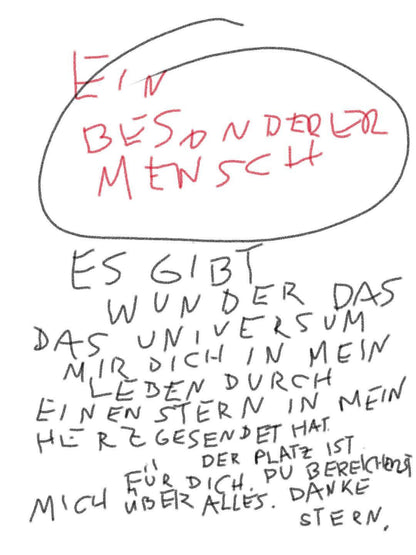 EIN
BESONDERER
MENSCH
ES GIBT
WUNDER DAS
DAS UNIVERSUM
MIR DICH IN MEIN
LEBEN DURCH
EINEN STERN IN MEIN
HERZ GESENDET HAT.
DER PLATZ IST
FÜR DICH. DU BEREICHERST
MICH ÜBER ALLES. DANKE
STERN.